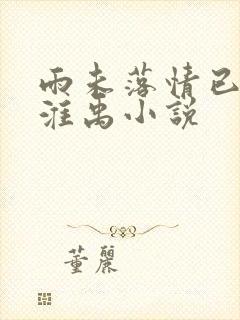 雨未落情已
淮禹小説
董麗